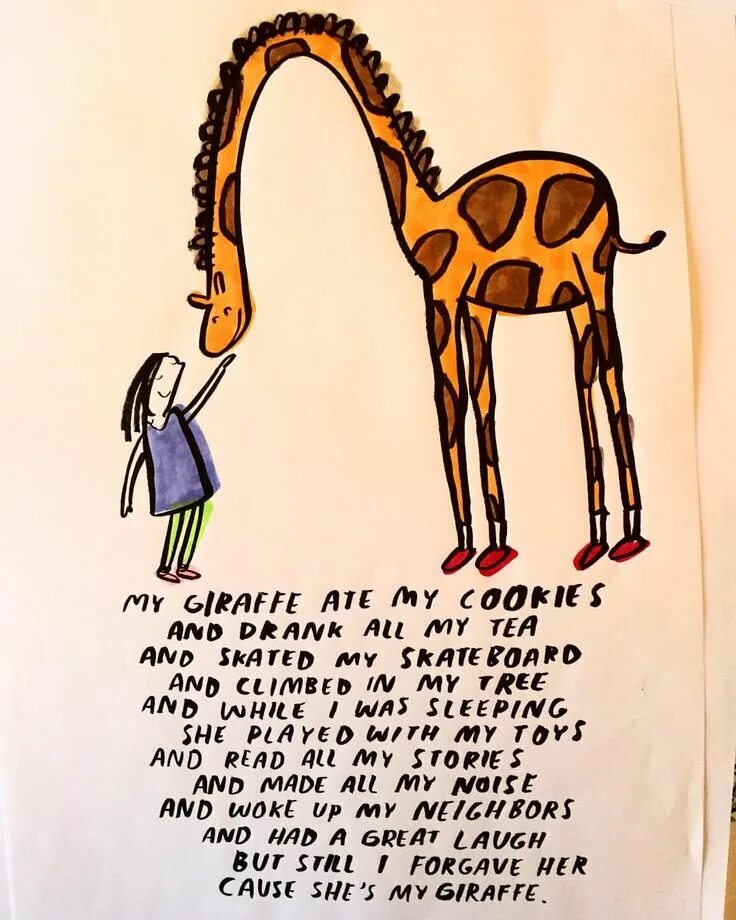 MY GIRAFFE ATE MY COOKIES
AND DRANK ALL MY TEA
AND SKATED MY SKATEBOARD
AND CLIMBED IN MY TREE
AND WHILE I WAS SLEEPING
SHE PLAYED WITH MY TOYS
AND READ ALL MY STORIES
AND MADE ALL MY NOISE
AND WOKE UP MY NEIGHBORS
AND HAD A GREAT LAUGH
BUT STILL I FORGAVE HER
CAUSE SHE'S MY GIRAFFE.